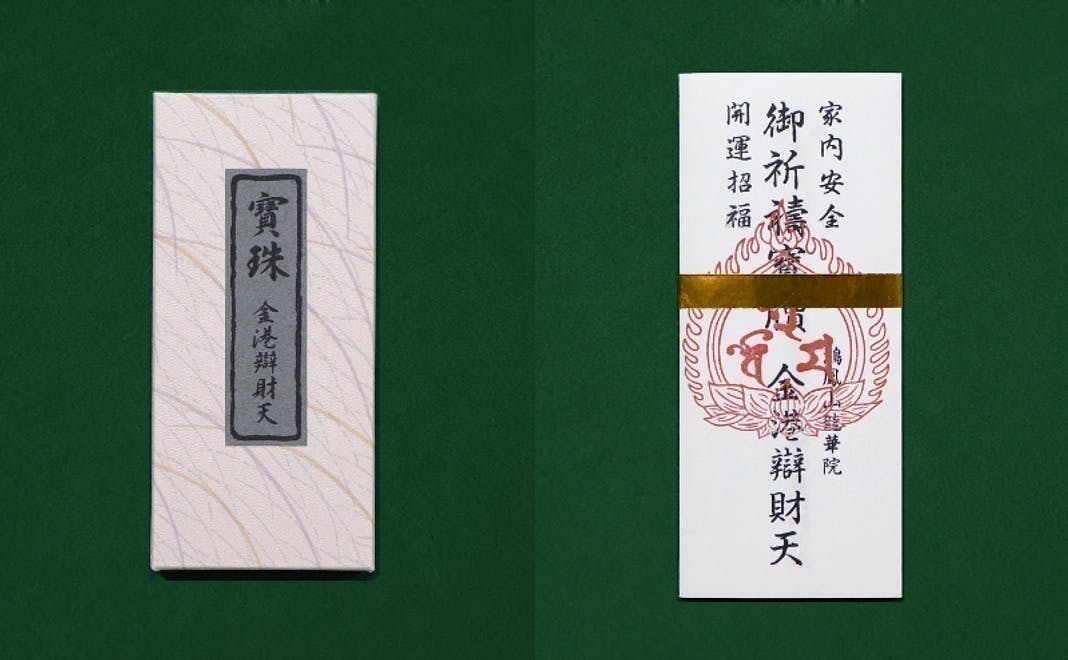 寶珠
金港辯財天
家内安全
鳳山 華院
御祈禱寶 金港辯財天
開運招福